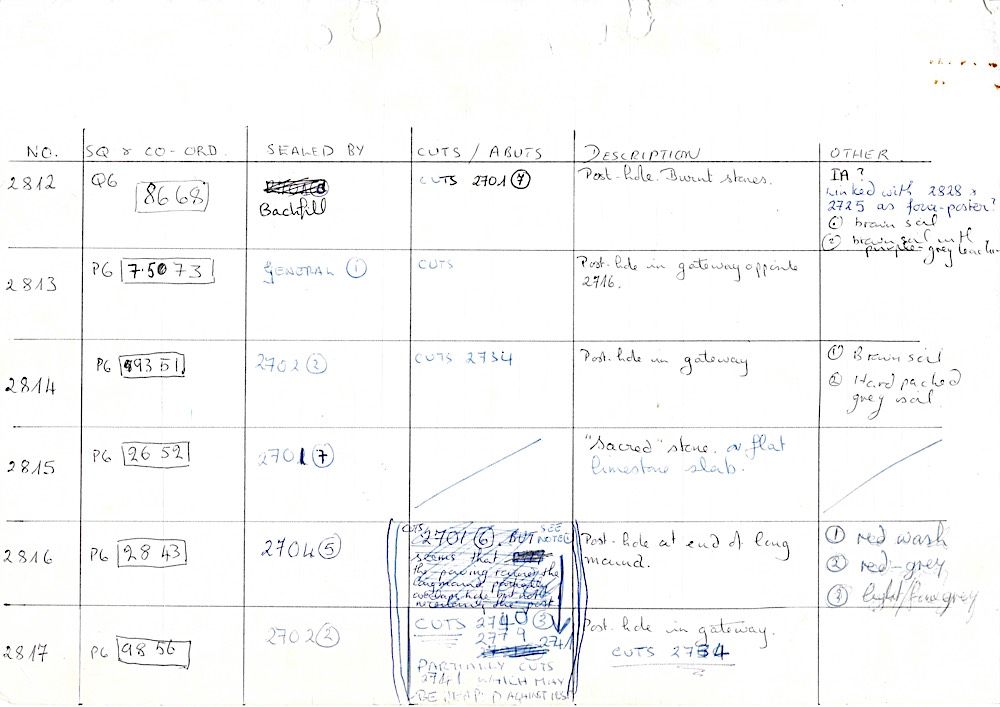 NO. SQ & CO-ORD. SEALED BY CUTS / ABUTS DESCRIPTION OTHER
2812
Q6
8668
Backfill
CUTS 2701 ⑦
Post-hole. Burnt stones.
IA?
Linked with 2828 &
2725 as four-poster?
① brown soil
② brown soil with
purple-grey
2813
P6 7.50 73
GENERAL ①
CUTS
Post-hole in gateway opposite
2716.
2814
P6 9351
2702 ③
CUTS 2734
Post-hole in gateway
① Brown soil
② Hard packed
grey soil.
2815
P6 2652
2701 ⑦
"Sacred" stone. or flat
limestone slab.
2816
P6 2843
2704 ⑤
CUTS
2701 ⑥. BUT SEE
NOTE
seems that
the paving the
long mound partially
overlaps hole but not
the post
CUTS 2740 ③
2779 2741
PARTIALLY CUTS
2741. WHICH MAY
BE
Post-hole at end of long
mound.
① red wash
② red-grey
③ light/fine grey
2817
P6 9856
2702 ②
Post-hole in gateway.
CUTS 2734